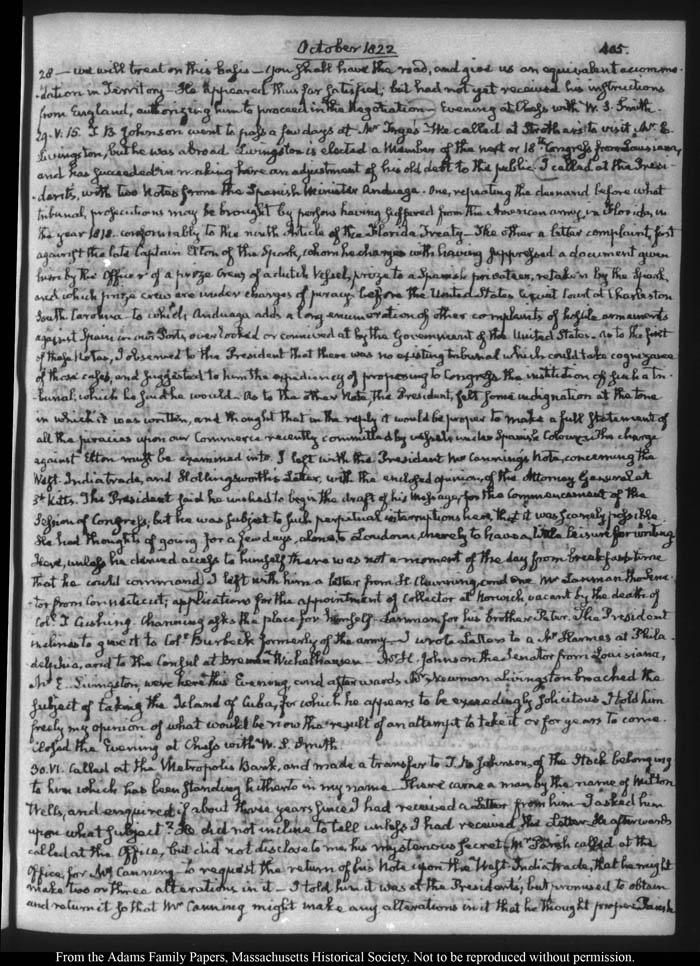 October 1822
405.
28 — we will treat on this basis — you shall have the road, and give us an equivalent accommo-
-dation in Territory — He appeared thus far satisfied; but had not yet received his instructions
from England, authorizing him to proceed in the Negotiation — Evening at Chess with W. S. Smith.
29. V. 15. T. B. Johnson went to pass a few days at Mr We called at Strother's to visit Mr E.
Livingston, but he was abroad. Livingston is elected a Member of the next or 18th Congress from Louisiana,
and has succeeded in making here an adjustment of his old debt to the public. I called at the Presi-
-dent's, with two Notes from the Spanish Minister Anduaga. One, repeating the demand before what
tribunal, prosecutions may be brought by persons having suffered from the American army in Florida, in
the year 1818. conformably to the ninth Article of the Florida Treaty — The other a bitter complaint, first
against the late Captain Elton of the Spark, whom he charges with having suppressed a document given
him by the Officer of a prize Crew, of a dutch Vessel, prize to a Spanish privateer, retaken by the Spark,
and which prize crew are under charges of piracy before the United States Circuit Court at Charleston
South Carolina to which Anduaga adds a long enumeration of other complaints of hostile armaments
against Spain in our Ports, overlooked or connived at by the Government of the United States. As to the first
of these Notes, I observed to the President that there was no existing tribunal which could take cognizance
of those cases, and suggested to him the expediency of proposing to Congress the institution of such a tri-
-bunal; which he said he would. As to the other Note, the President, felt some indignation at the tone
in which it was written, and thought that in the reply it would be proper to make a full statement of
all the piracies upon our Commerce recently committed by vessels under Spanish Colours. The charge
against Elton must be examined into. I left with the President Mr Canning's Note, concerning the
West India trade, and Hollingsworth's Letter, with the enclosed opinion, of the Attorney General at
St Kitts. The President said he wished to begin the draft of his Message, for the Commencement of the
Session of Congress, but he was subject to such perpetual interruptions here, that it was scarcely possible.
He had thoughts of going for a few days, alone, to Loudoun, merely to have a little leisure for writing
Here, unless he denied access to himself there was not a moment of the day from breakfast time
that he could command. I left with him a letter from H. Channing, and one Mr Lanman the Sena-
-tor from Connecticut; applications for the appointment of Collector at Norwich vacant by the death of
Col. T Cushing. Channing asks the place for himself — Lanman for his brother Peter. The President
inclines to give it to Col. Burbeck formerly of the army — I wrote Letters to a Mr Harmes at Phila-
delphia, and to the Consul at Bremen Wichelhausen — Mr H. Johnson the Senator from Louisiana,
Mr E. Livingston, were here this Evening, and afterwards Mr Newman. Livingston broached the
subject of taking the Island of Cuba, for which he appears to be exceedingly solicitous. I told him
freely my opinion of what would be now the result of an attempt to take it or for years to come.
Closed the Evening at Chess with W. S. Smith.
30. VI. Called at the Metropolis Bank, and made a transfer to T. B. Johnson, of the Stock belonging
to him which has been standing hitherto in my name. There came a man by the name of Milton
Wells, and enquired if about three years since I had received a Letter from him — I asked him
upon what subject? He did not incline to tell unless I had received the Letter. He afterwards
called at the Office, but did not disclose to me his mysterious secret. Mr Parish called at the
Office, for Mr Canning to request the return of his Note upon the West-India trade, that he might
make two or three alterations in it — I told him it was at the Presidents; but promised to obtain
and return it so that Mr Canning might make any alterations in it that he thought proper. Parish
From the Adams Family Papers, Massachusetts Historical Society. Not to be reproduced without permission.